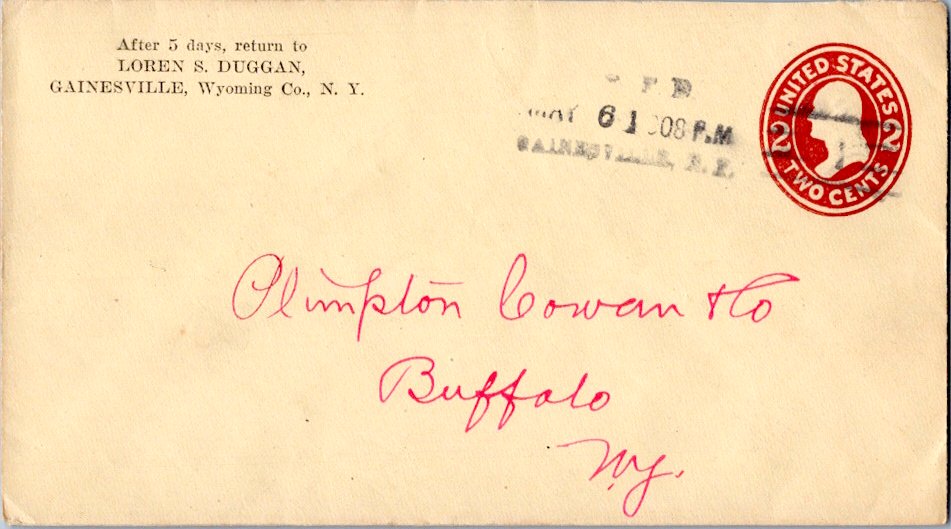 After 5 days, return to
LOREN S. DUGGAN,
GAINESVILLE, Wyoming Co., N. Y.
6 1908 P.M
GAINESVILLE, N. Y.
UNITED STATES
2 2
TWO CENTS
Plimpton Cowan & Co
Buffalo
N.Y.